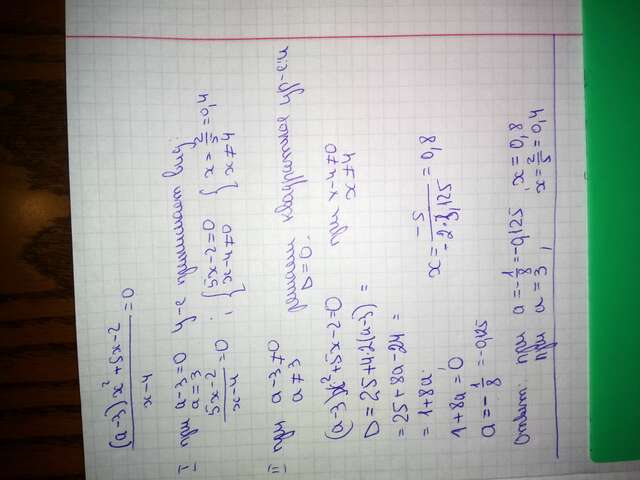 (a-3)x²+5x-2
x-4 =0
I при a-3=0 ур-е принимает вид:
a=3
5x-2
x-4 =0 ; { 5x-2=0 { x=2/5=0,4
x-4≠0 x≠4
II при a-3≠0 решаем квадратное ур-е и
a≠3 D=0.
(a-3)x²+5x-2=0 при x-4≠0
D=25+4·2(a-3)= x≠4
=25+8a-24=
=1+8a
1+8a=0 x=-5/-2·3,125=0,8
a=-1/8=-0,125
Ответ: при a=-1/8=-0,125 , x=0,8
при a=3 , x=2/5=0,4